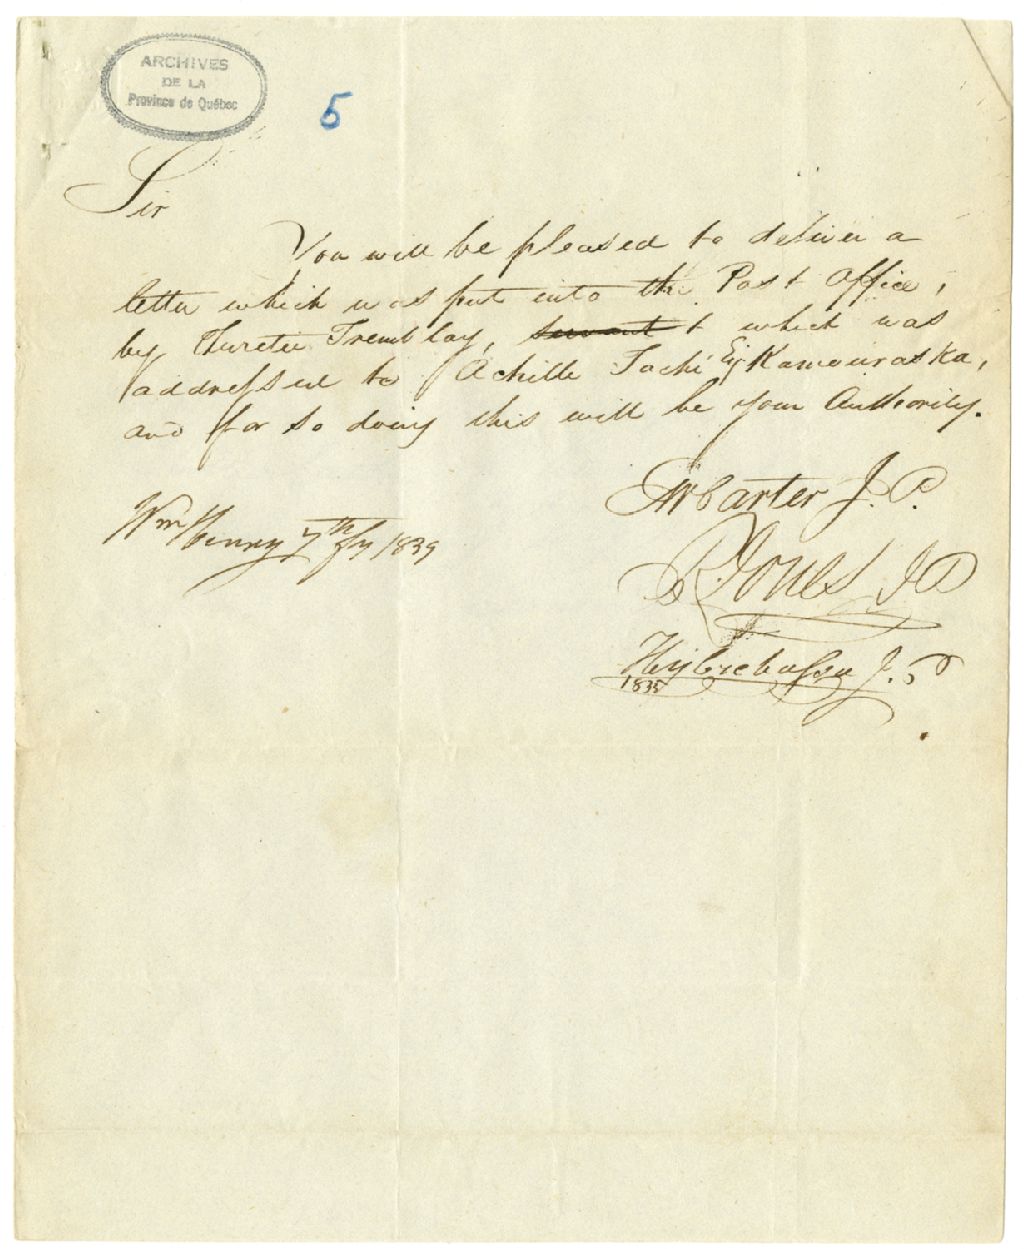 ARCHIVES
DE LA
Province de Québec
5
Sir
You will be pleased to deliver a
letter which was put into the Post Office,
by Aurelie Tremblay, servant & which was
addressed to Achille Taché Esq Kamouraska,
and for so doing this will be your Authority.
Carter J.P.
Wm Henry 7th Fy 1839
R. Jones JP
J.P